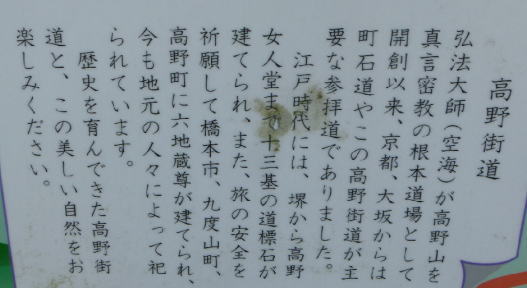 高野街道
弘法大師(空海)が高野山を
真言密教の根本道場として
開創以来、京都、大坂からは
町石道やこの高野街道が主
要な参拝道でありました。
江戸時代には、堺から高野
女人堂まで十三基の道標石が
建てられ、また、旅の安全を
祈願して橋本市、九度山町、
高野町に六地蔵尊が建てられ、
今も地元の人々によって祀
られています。
歴史を育んできた高野街
道と、この美しい自然をお
楽しみください。